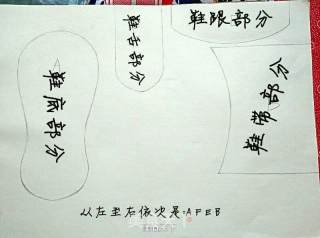 鞋跟部分
鞋舌部分
鞋底部分
鞋带部分
从左至右依次是:AFEB